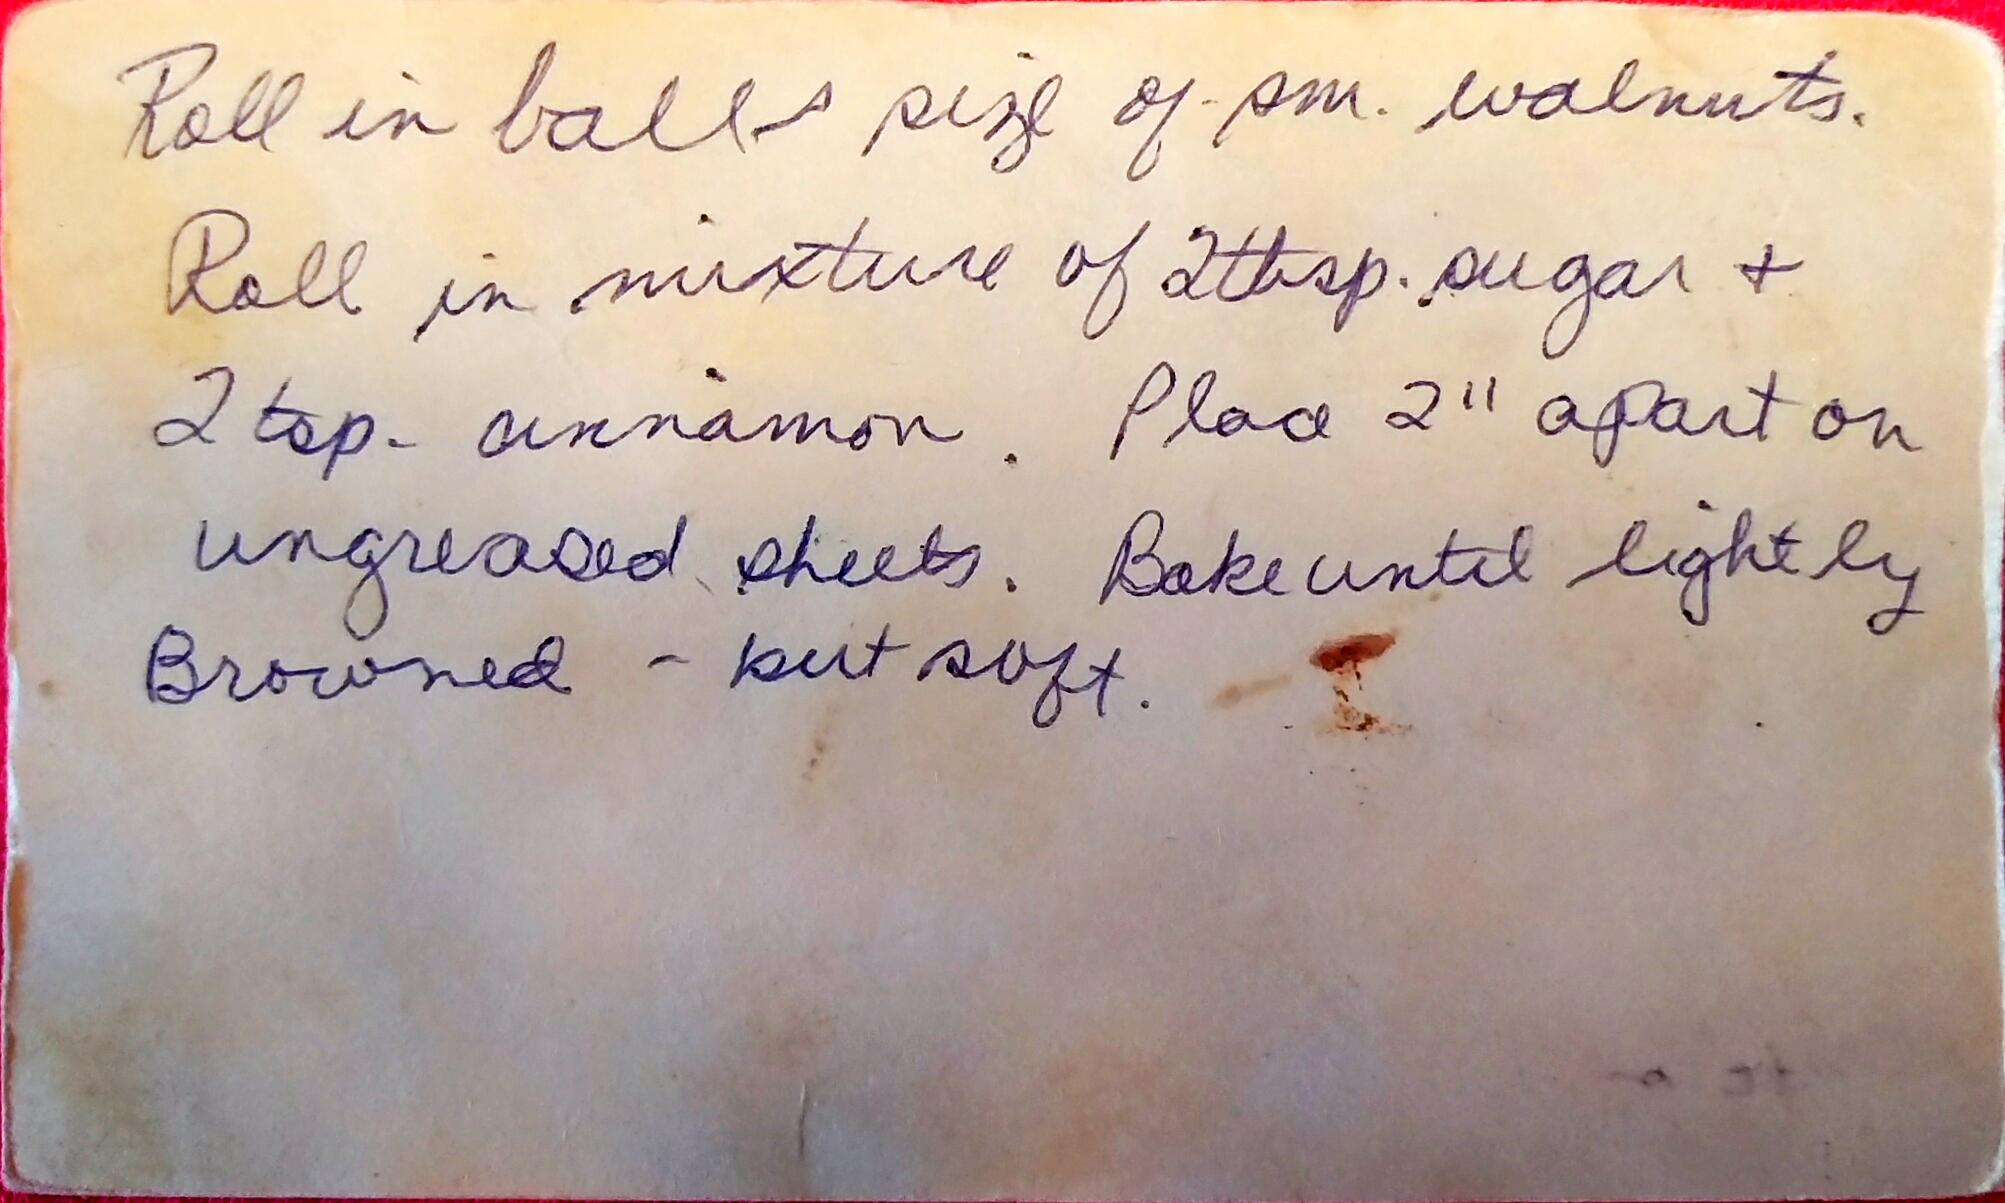 Roll in balls size of sm. walnuts.
Roll in mixture of 2 tbsp. sugar +
2 tsp. cinnamon. Place 2" apart on
ungreased sheets. Bake until lightly
Browned - but soft.